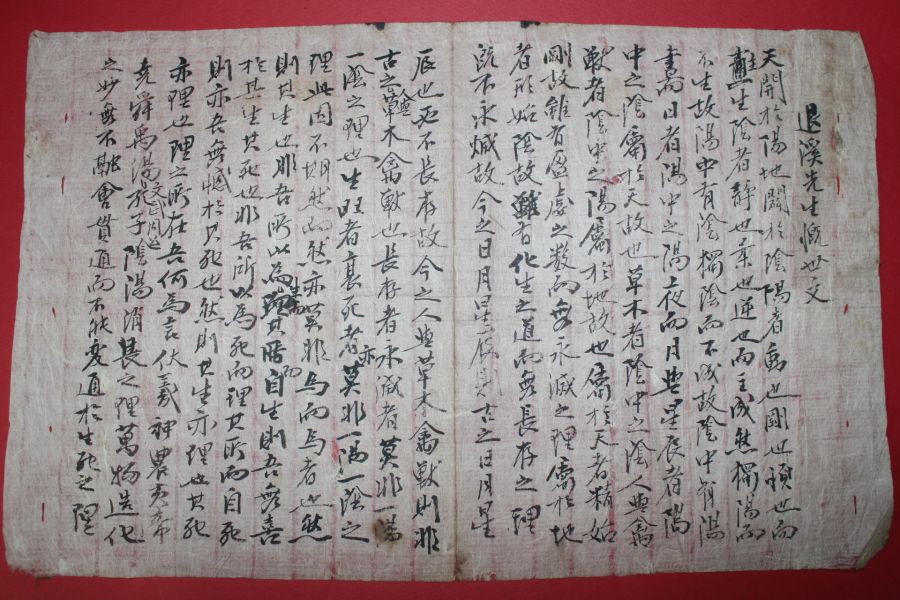 退溪先生慨世文
天開於陽地闢於陰陽者動也圓也順也而
主生陰者靜也柔也逆也而主成然獨陽而
不生故陽中有陰獨陰而不成故陰中有陽
晝而日者陽中之陽夜而月與星辰者陽
中之陰屬於天故也草木者陰中之陰人與禽
獸者陰中之陽屬於地故也屬於天者精始
剛故雖有盈虛之數而無永滅之理屬於地
者形始陰故雖有化生之道而無長存之理
旣不永滅故今之日月星辰古之日月星
辰也旣不長存故今之人與草木禽獸則非
古之草木禽獸也長存者永滅者莫非一陽
一陰之理也生旺者衰死者亦莫非一陽一陰之
理此固不期然而然亦莫非為而為者也然
則其生也非吾所以為生而理其所而自生則吾無喜
於其生其死也非吾所以為死而理其所而自死
則亦吾無憾於其死也然則其生亦理也其死
亦理也理之所在吾何為言伏羲神農黃帝
堯舜禹湯文武周公孔子陰陽消長之理萬物造化
之妙無不融會貫通而不能變通於生死之理